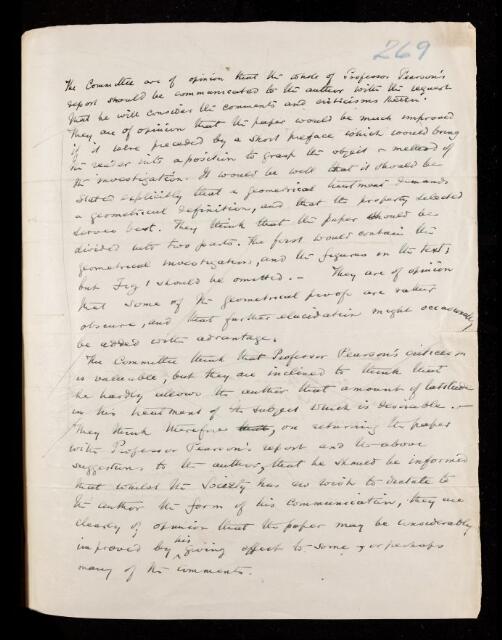 269
The Committee are of opinion that the whole of Professor Pearson's
report should be communicated to the author with the request
that he will consider the comments and criticisms therein.
They are of opinion that the paper would be much improved
if it were preceded by a short preface which would bring
the reader into a position to grasp the object & method of
the investigation. It would be well that it should be
stated explicitly that a geometrical treatment demands
a geometrical definition, and that the property selected
serves best. They think that the paper should be
divided into two parts. The first would contain the
geometrical investigation, and the figures in the text,
but Fig 1 should be omitted. — They are of opinion
that some of the geometrical proofs are rather
obscure, and that further elucidation might occasionally
be added with advantage.
The Committee think that Professor Pearson's criticism
is valuable, but they are inclined to think that
he hardly allows the author that amount of latitude
in his treatment of the subject which is desirable. —
They think therefore that, on returning the paper
with Professor Pearson's report and the above
suggestions to the author, that he should be informed
that whilst the Society has no wish to dictate to
the author the form of his communication, they are
clearly of opinion that the paper may be considerably
improved by his giving effect to some, or perhaps
many of the comments.